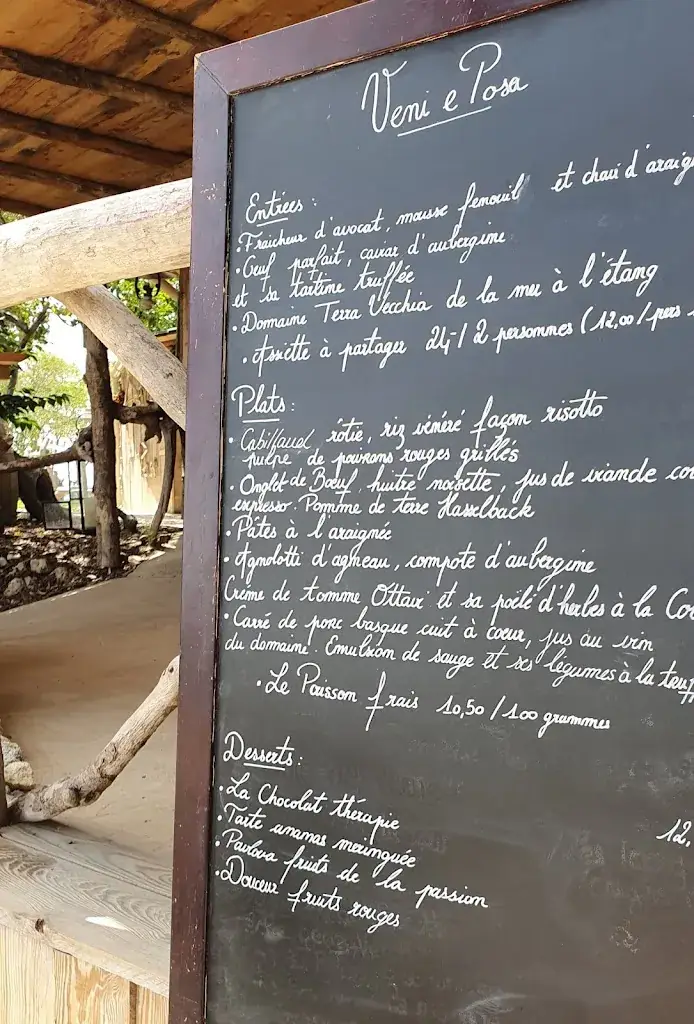 Veni e Posa
Entrées :
• Fraicheur d'avocat, mousse fenouil et chair d'araig
• Oeuf parfait, caviar d'aubergine
et sa tartine truffée
• Domaine Terra Vecchia de la mer à l'étang
• Assiette à partager 24,-/ 2 personnes (12,00/pers
Plats :
• Cabillaud rôtie, riz vénéré façon risotto
de poivrons rouges grillés
• Onglet de Bœuf, huitre noisette, jus de viande co
expresso. Pomme de terre Hasselback
• Pâtes à l'araignée
• Agnolotti d'agneau, compote d'aubergine
Crème de tomme Ottavi et sa poêlé d'herbes à la Co
• Carré de porc basque cuit à cœur, jus au vin
du domaine. Emulsion de sauge et ses légumes à la truff
• Le Poisson frais 10,50 /100 grammes
Desserts :
• La Chocolat thérapie
12.
• Tarte ananas meringuée
• Pavlova fruits de la passion
• Douceur fruits rouges